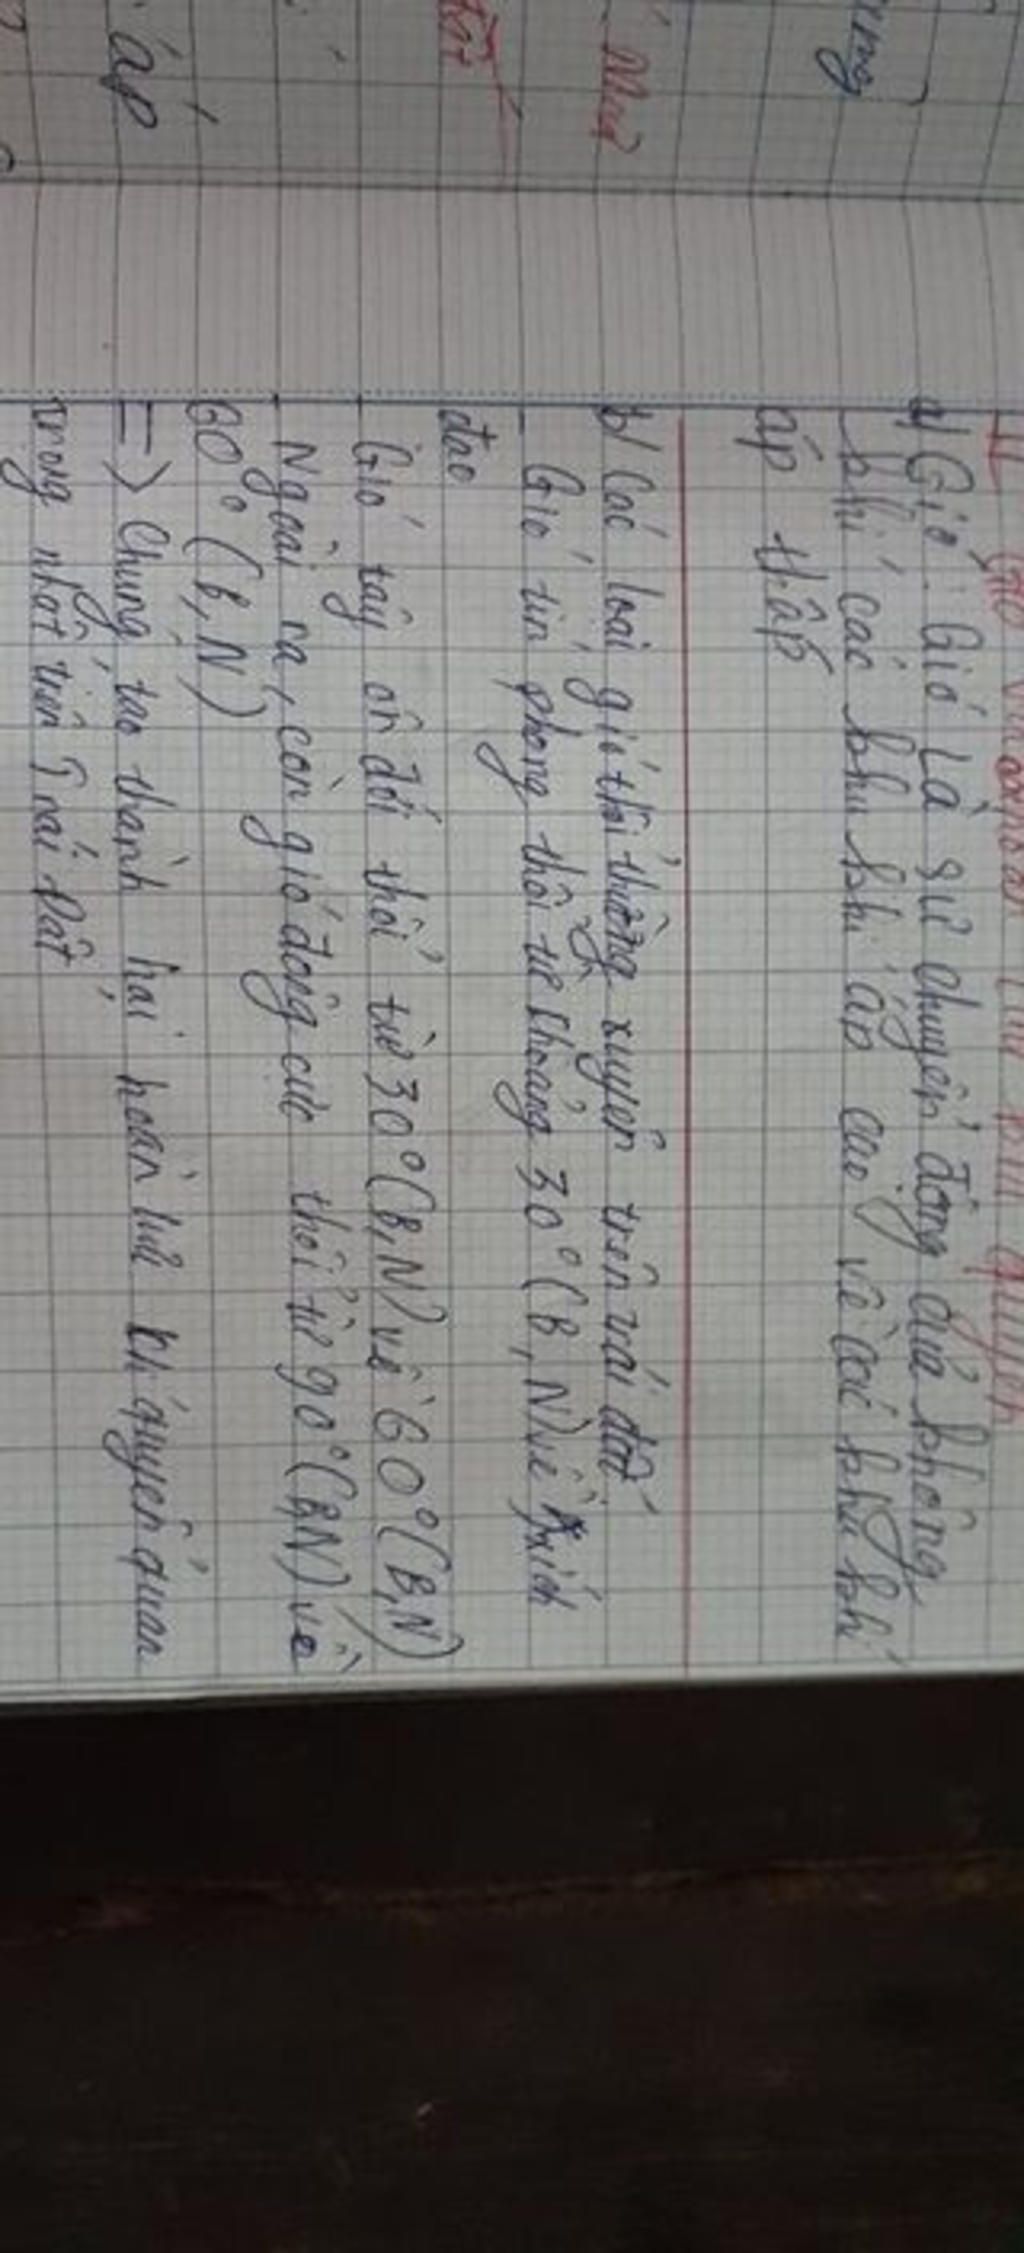 II Gió và hoàn lưu khí quyển
a) Gió: Gió Là sự chuyển động của không
khí các khu khí áp cao về các khu khí
áp thấp
b) Các loại gió thổi thường xuyên trên trái đất
- Gió tín phong thổi từ khoảng 30° (B, N) về xích
đạo
Gió tây ôn đới thổi từ 30° (B, N) về 60° (B, N)
- Ngoài ra, còn gió đông cực thổi từ 90° (B, N) về
60° (B, N)
=> Chúng tạo thành hai hoàn lưu khí quyển quan
trọng nhất trên Trái Đất
áp